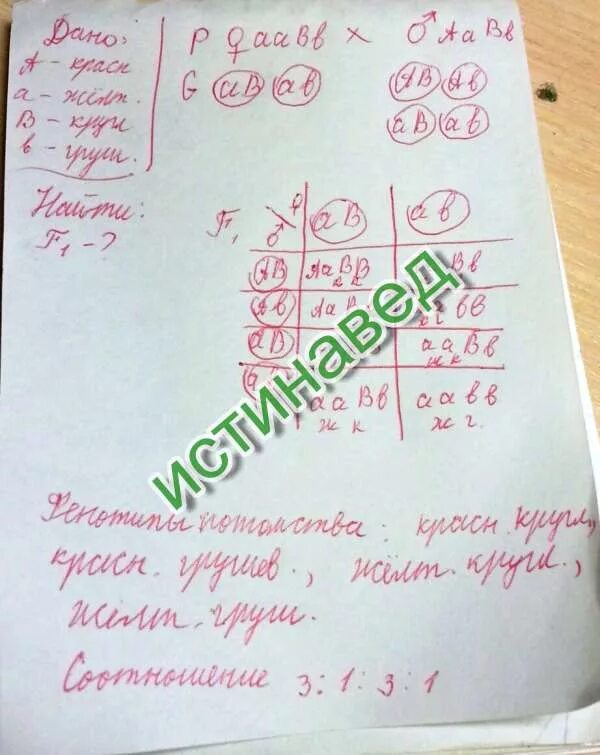 Дано:
А - красн
а - жёлт.
В - кругл
в - груш.
Найти:
F₁ - ?
Р ♀ ааВв × ♂ АаВв
G аВ ав АВ Ав
аВ ав
F₁ ♂ ♀ аВ ав
АВ АаВВ Вв
к к
Ав Аа вв
к г
аВ ааВв
ж к
ааВв аавв
ж к ж г.
истинавед
Фенотипы потомства: красн. кругл.,
красн. грушев., жёлт. кругл.,
жёлт. груш.
Соотношение 3:1:3:1